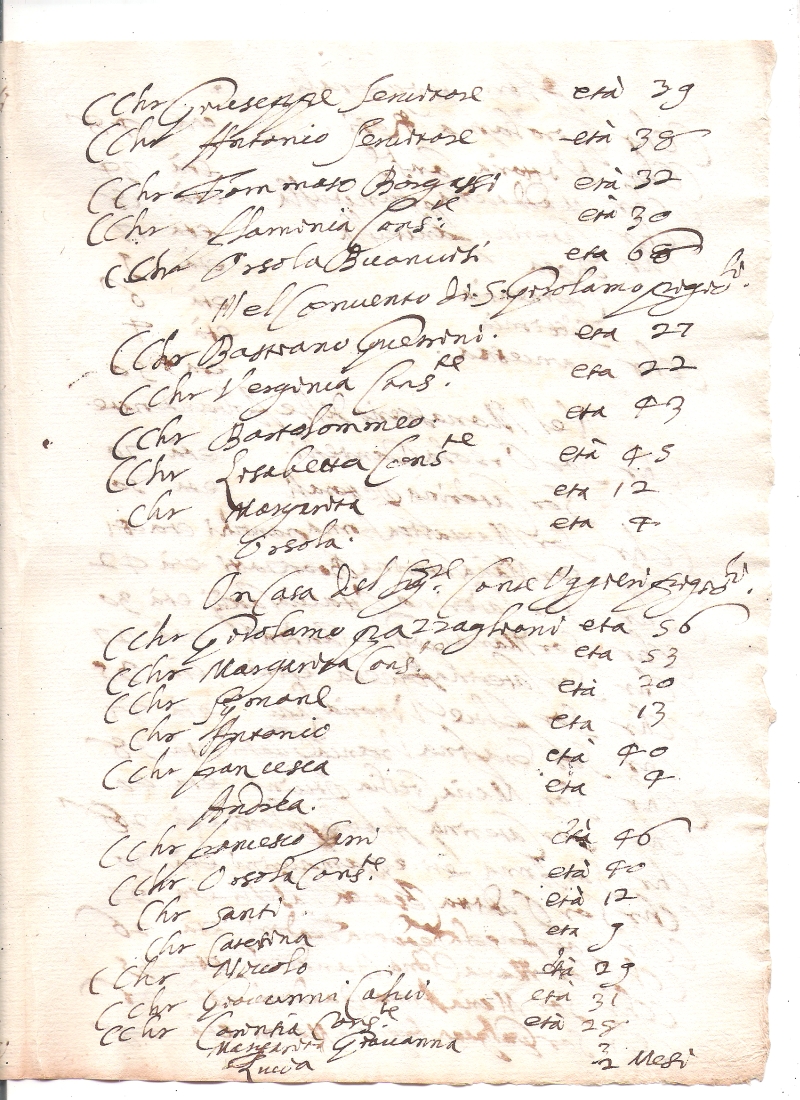 CChr Giuseppe Seruitore età 39
CChr Antonio Seruitore età 38
CChr Tommaso Borgassi età 32
CChr Flaminia Cons:te età 30
CChr Orsola Buonuisi eta 68
Nel Conuento di S. Girolamo pigio:li.
CChr Bastiano Guerrini. eta 27
CChr Verginia Cons:te eta 22
CChr Bartolommeo. eta 43
CChr Lisabetta Cons:te età 45
Chr Margarita eta 12
Orsola. eta 4
In Casa del Sig:re Conte Vggieri pigio:li.
CChr Girolamo pazzaglioni eta 56
CChr Margarita Cons: eta 53
CChr età 20
Chr Antonio eta 13
CChr francesca età 40
Andrea. eta 4
CChr francesco età 46
CChr Orsola Cons:te età 40
Chr Santi età 12
Chr Caterina eta 9
CChr Niccolo età 29
CChr Giouanni età 31
CChr Cons:te età 25
Margarita Giouanna 3
Lucia 2 Mesi